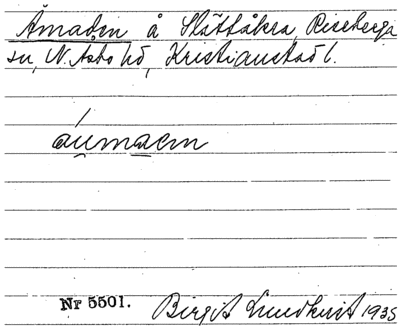 Åmaden å Slättåkra, Riseberga
sn, N. Åsbo hd, Kristianstad l.
áu̯maen
Nr 5501. Birgit Lundkvist 1935